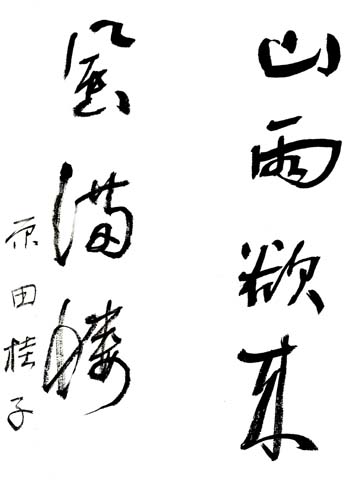 山雨欲来
風満楼
原田桂子